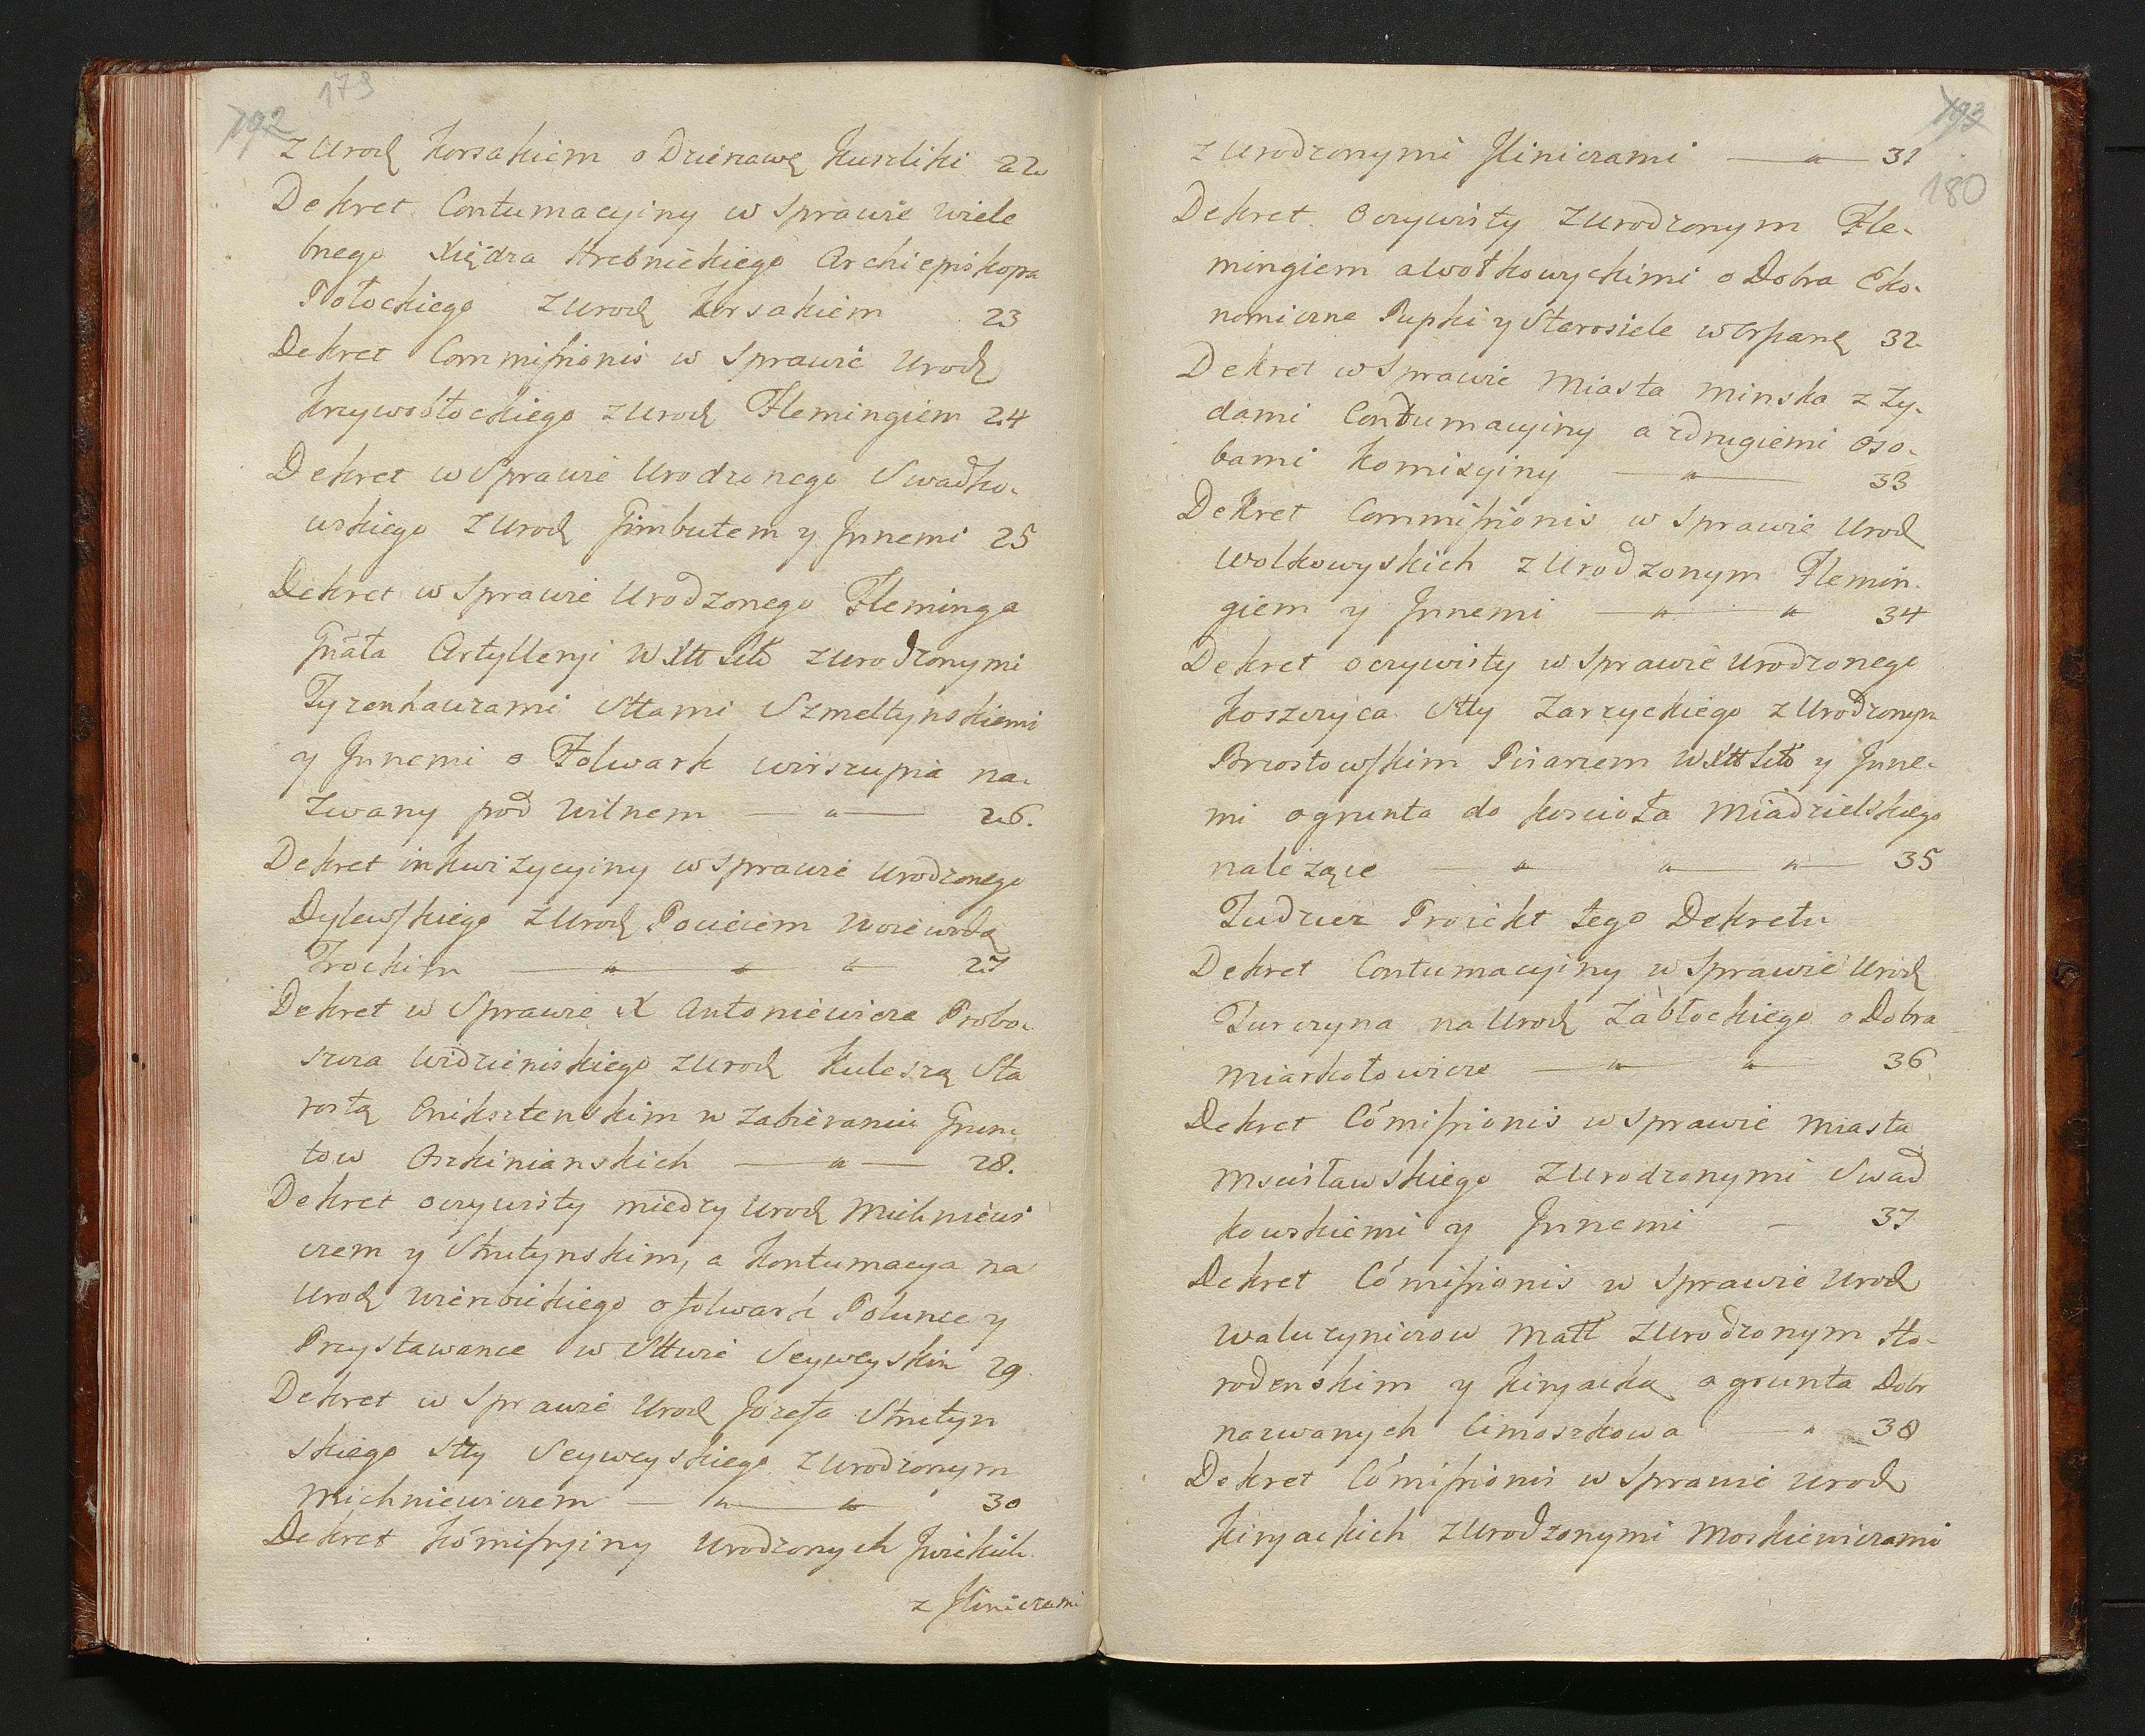 192 179
z Urodz Korsakiem o Dzierżawę Kuszliki 22
Dekret Contumacyiny w Sprawie wiele
bnego Xiędza Hrebnickiego Archiepiskopa
Połockiego z Urodz Korsakiem 23
Dekret Commissionis w Sprawie Urodz
Krzywobłockiego z Urodz Flemingiem 24
Dekret w Sprawie Urodzonego Swadko-
wskiego z Urodz Gimbutem y Jnnemi 25
Dekret w Sprawie Urodzonego Fleminga
Gnała Artylleryi W X Litt z Urodzonymi
Tyzenhauzami Sttami Szmeltynskiemi
y Jnnemi o Folwark wirszupia na-
zwany pod Wilnem — " — 26.
Dekret inkwizycyiny w sprawie Urodzonego
Dylewskiego z Urodz Pocieiem Woiewodą
Trockim — " " " 27
Dekret w Sprawie X Antoniewicza Probo-
szcza Widzieniskiego z Urodz Kuleszą Sta
rostą Oniksztenskim w zabieraniu Grun-
tow Oszkinianskich — " — 28.
Dekret oczywisty miedzy Urodz Michniewi
czem y Strutynskim, a Kontumacya na
Urodz Wierbickiego o folwark Polunce y
Przystawance w Sttwie Seyweyskim 29
Dekret w Sprawie Urodz Jozefa Strutyn
skiego Stty Seyweyskiego z Urodzonym
Michniewiczem — " — " 30
Dekret Kómissyiny Urodzonych
z Jliniczami
193
180
z Urodzonymi Jliniczami — " — 31
Dekret Oczywisty z Urodzonym Fle-
mingiem a Wołkowyckimi o Dobra Eko-
nomiczne Pupki y Starosiele w Orszanz 32
Dekret w Sprawie Miasta Minska z Zy-
dami Contumacyiny a z drugiemi Oso-
bami Komisyiny — " — 33
Dekret Commissionis w Sprawie Urodz
Wolkowyskich z Urodzonym Flemin-
giem y Jnnemi — " — " 34
Dekret oczywisty w Sprawie Urodzonego
Koszczyca Stty Zarzyckiego z Urodzonym
Brzostowskim Pisarzem W X Litt y Jnne-
mi o grunta do Kościoła Miadzielskiego
należące — " — " — " — 35
Tudzież Proiekt tego Dekretu
Dekret Contumacyiny w Sprawie Urodz
Turczyna na Urodz Zabłockiego o Dobra
Miarkołowicze — " — " — 36
Dekret Cómissionis w Sprawie Miasta
Mscisławskiego z Urodzonymi Swad
kowskiemi y Jnnemi — 37
Dekret Cómissionis w Sprawie Urodz
Waluzyniczow Matt z Urodzonym Ho-
rodenskim y Kiryacką o grunta Dobr
nazwanych Cimoszkowa — " — 38
Dekret Cómissionis w Sprawie Urodz
Kiryackich z Urodzonymi Moskiewiczami